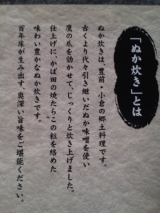 「ぬか炊き」とは
ぬか炊きは、豊前・小倉の郷土料理です。
古くより代々引き継いだぬか味噌を使い
鷹の爪を効かせて、じっくりと炊き上げました。
仕上げに、かば田の焼たらこの粒を絡めた
味わい豊かなぬか炊きです。
百年床が生み出す、奥深い旨味をご堪能ください。